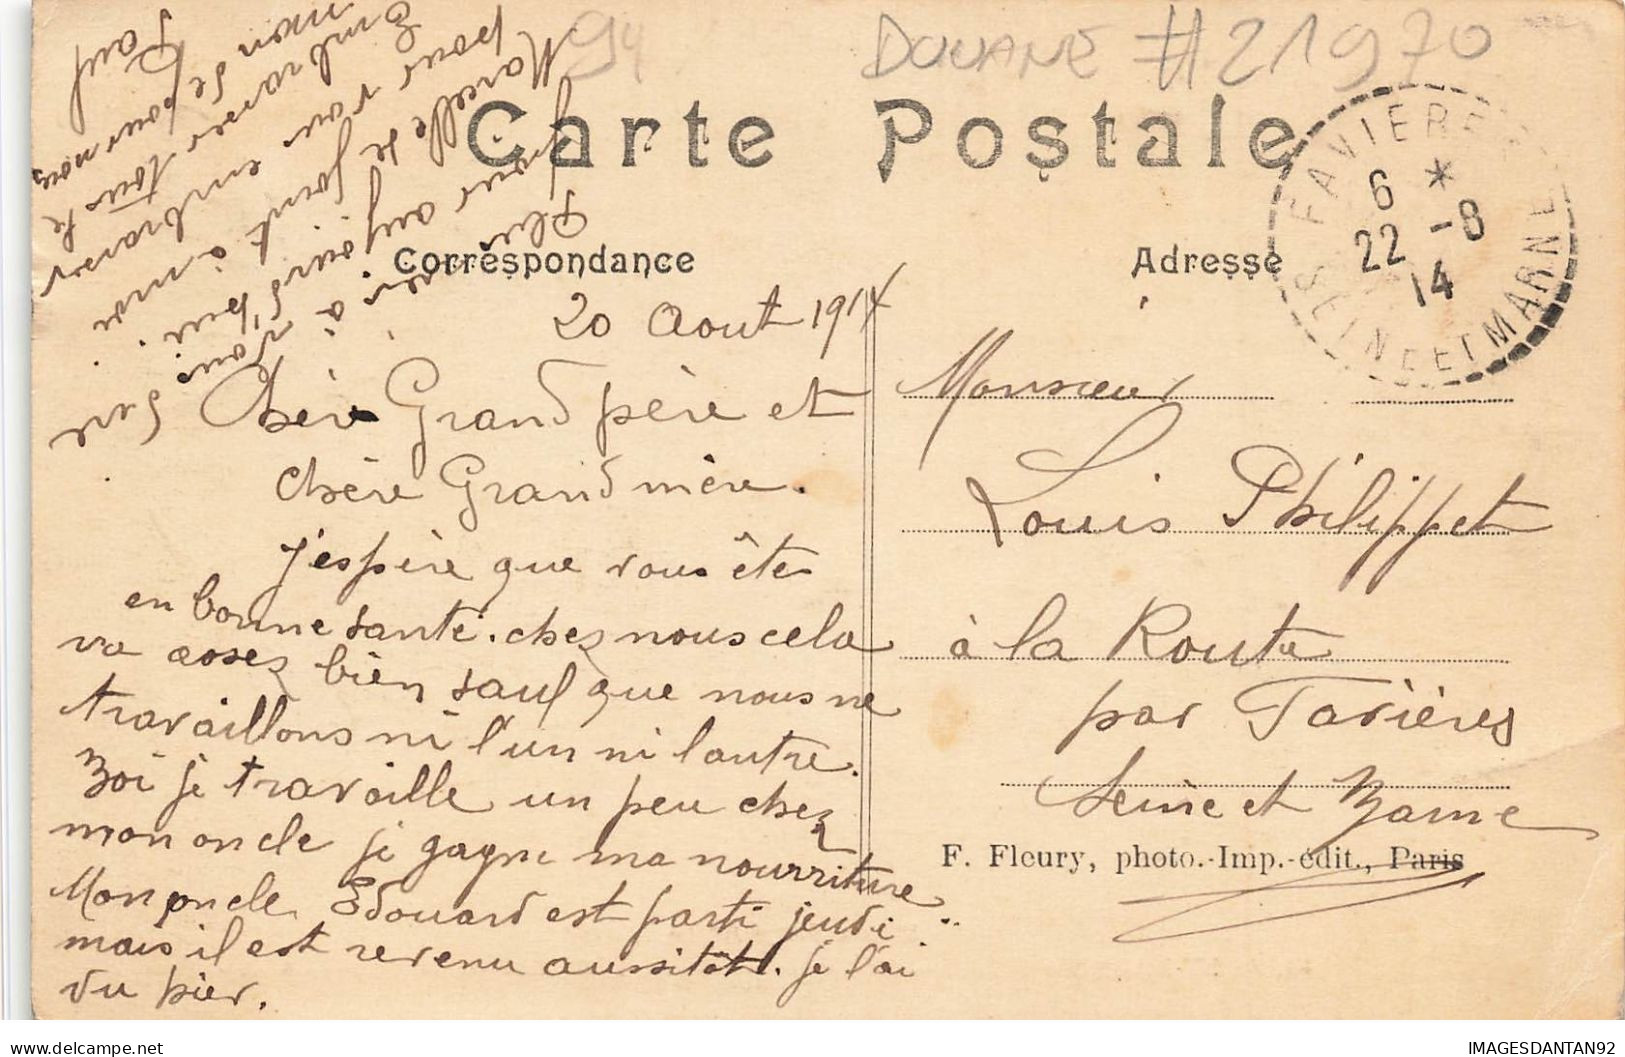 94
DOUANE #21970
Carte Postale
Correspondance
Adresse
FAVIERE
6 *
22 -8
14
SEINE ET MARNE
20 Aout 1914
Chèr Grand père et
chère Grand mère.
j'espère que vous êtes
en bonne santé. chez nous cela
va assez bien sauf que nous ne
travaillons ni l'un ni lautre.
Moi je travaille un peu chez
mon oncle je gagne ma nourriture
Mon oncle Edouard est parti jeudi
mais il est revenu aussitôt. je l'ai
vu hier.
Plus rien à vous dire
pour aujourd'hui.
Marcelle se joint à moi
pour vous embrasser
Embrasser tous le
monde pour nous,
Paul
Monsieur
Louis Philippet
à la Route
par Favières
Seine et Marne
F. Fleury, photo.-Imp.-édit., Paris
IMAGESDANTAN92
delcampe.net